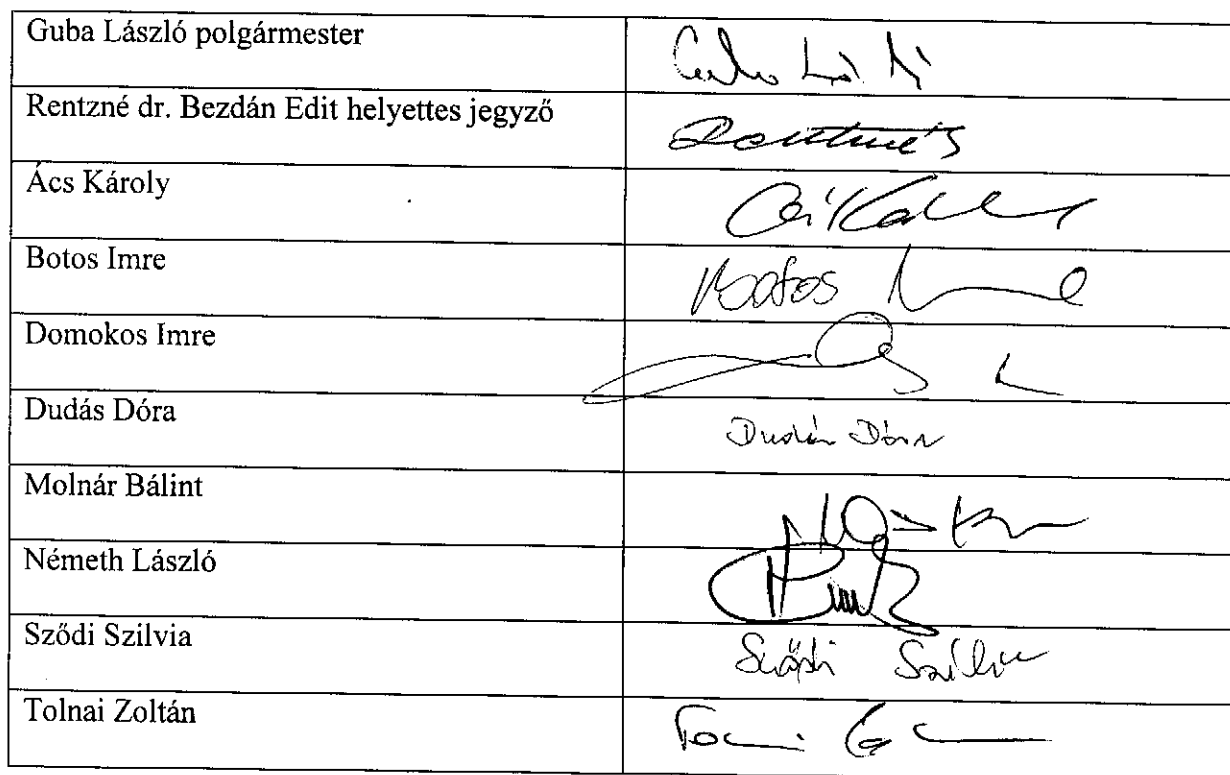 Guba László polgármester
Rentzné dr. Bezdán Edit helyettes jegyző
Rentzné
Ács Károly
Botos Imre
Botos
Domokos Imre
Dudás Dóra
Dudás Dóra
Molnár Bálint
Németh László
Sződi Szilvia
Sződi Szilvia
Tolnai Zoltán